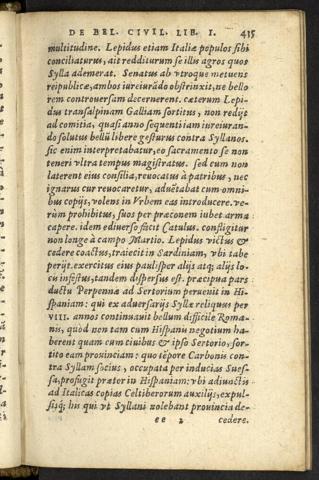 DE BEL. CIVIL. LIB. I. 435
multitudine. Lepidus etiam Italiæ populos sibi
conciliaturus, ait redditurum se illis agros quos
Sylla ademerat. Senatus ab vtroque metuens
reipublicæ, ambos iureiurādo obstrinxit, ne bello
rem controuersam decernerent. cæterum Lepi-
dus transalpinam Galliam sortitus, non redijt
ad comitia, quasi anno sequenti iam iureiuran-
do solutus bellū libere gesturus contra Syllanos.
sic enim interpretabatur, eo sacramento se non
teneri vltra tempus magistratus. sed cum non
laterent eius consilia, reuocatus à patribus, nec
ignarus cur reuocaretur, aduētabat cum omni-
bus copijs, volens in Vrbem eas introducere. ve-
rùm prohibitus, suos per præconem iubet arma
capere. idem ediuerso facit Catulus. confligitur
non longe à campo Martio. Lepidus victus &
cedere coactus, traiecit in Sardiniam, vbi tabe
perijt. exercitus eius paulisper alijs atq; alijs lo-
cis infestus, tandem dispersus est. præcipua pars
ductu Perpennæ ad Sertorium peruenit in Hi-
spaniam: qui ex aduersarijs Syllæ reliquus per
VIII. annos continuauit bellum difficile Roma-
nis, quòd non tam cum Hispanis negotium ha-
berent quam cum ciuibus & ipso Sertorio, sor-
tito eam prouinciam: quo tēpore Carbonis con-
tra Syllam socius, occupata per inducias Sues-
sa, profugit prætor in Hispaniam: vbi adiunctis
ad Italicas copias Celtiberorum auxilijs, expul-
sisq; his qui vt Syllani nolebant prouincia de-
ee 2 cedere.